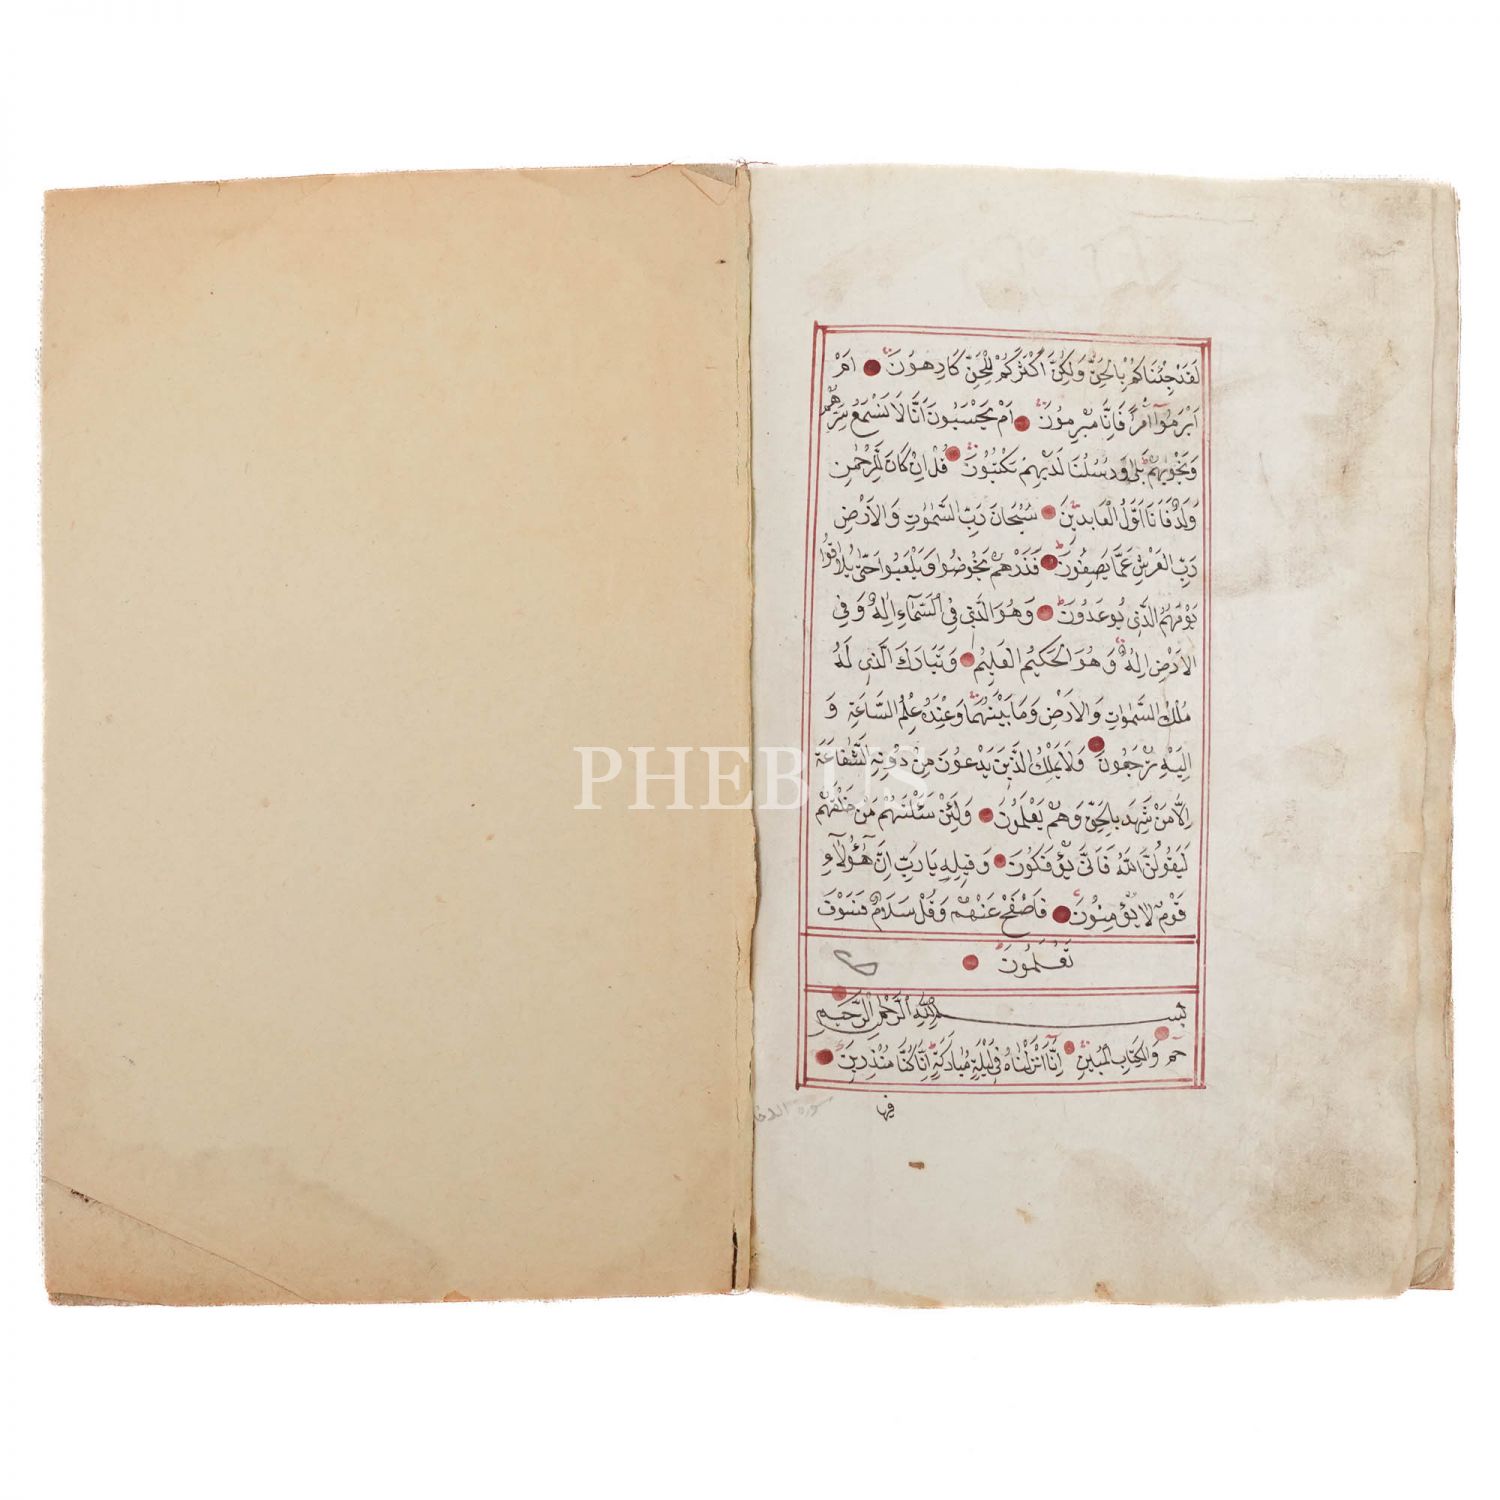 لَقَدْ جِئْنَاكُمْ بِالْحَقِّ وَلٰكِنَّ اَكْثَرَكُمْ لِلْحَقِّ كَارِهُونَ اَمْ
اَبْرَمُوٓا اَمْرًا فَاِنَّا مُبْرِمُونَ اَمْ يَحْسَبُونَ اَنَّا لَا نَسْمَعُ سِرَّهُمْ
وَنَجْوٰيهُمْ بَلٰى وَرُسُلُنَا لَدَيْهِمْ يَكْتُبُونَ قُلْ اِنْ كَانَ لِلرَّحْمٰنِ
وَلَدٌ فَاَنَا اَوَّلُ الْعَابِدِينَ سُبْحَانَ رَبِّ السَّمٰوَاتِ وَالْاَرْضِ
رَبِّ الْعَرْشِ عَمَّا يَصِفُونَ فَذَرْهُمْ يَخُوضُوا وَيَلْعَبُوا حَتّٰى يُلَاقُوا
يَوْمَهُمُ الَّذِى يُوعَدُونَ وَهُوَ الَّذِى فِى السَّمَاءِ اِلٰهٌ وَفِى
الْاَرْضِ اِلٰهٌ وَهُوَ الْحَكِيمُ الْعَلِيمُ وَتَبَارَكَ الَّذِى لَهُ
مُلْكُ السَّمٰوَاتِ وَالْاَرْضِ وَمَا بَيْنَهُمَا وَعِنْدَهُ عِلْمُ السَّاعَةِ وَ
اِلَيْهِ تُرْجَعُونَ وَلَا يَمْلِكُ الَّذِينَ يَدْعُونَ مِنْ دُونِهِ الشَّفَاعَةَ
اِلَّا مَنْ شَهِدَ بِالْحَقِّ وَهُمْ يَعْلَمُونَ وَلَئِنْ سَئَلْتَهُمْ مَنْ خَلَقَهُمْ
لَيَقُولُنَّ اللّٰهُ فَاَنّٰى يُؤْفَكُونَ وَقِيلِهِ يَا رَبِّ اِنَّ هٰٓؤُلَآءِ
قَوْمٌ لَا يُؤْمِنُونَ فَاصْفَحْ عَنْهُمْ وَقُلْ سَلَامٌ فَسَوْفَ
تَعْلَمُونَ
بِسْمِ اللّٰهِ الرَّحْمٰنِ الرَّحِيمِ
حٰمٓ وَالْكِتَابِ الْمُبِينِ اِنَّا اَنْزَلْنَاهُ فِى لَيْلَةٍ مُبَارَكَةٍ اِنَّا كُنَّا مُنْذِرِينَ
فيها
سورة الدخا
PHEBUS